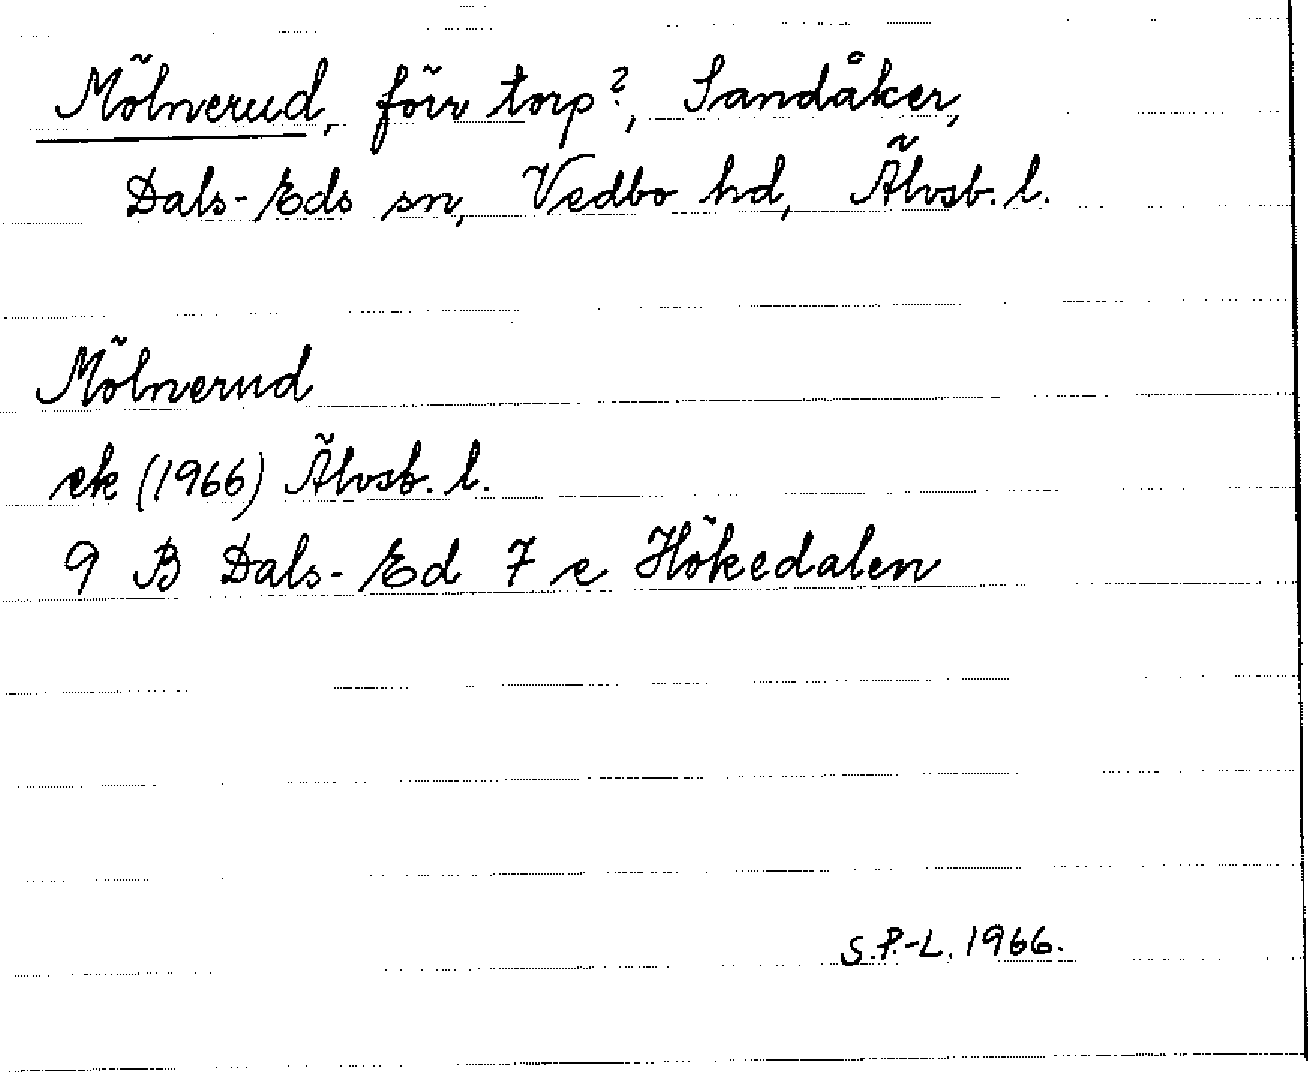 Mölnerud, förr torp?, Sandåker,
Dals-Eds sn, Vedbo hd, Älvsb. l.
Mölnerud
ek (1966) Älvsb. l.
9 B Dals-Ed 7 e Hökedalen
S.P.-L. 1966.